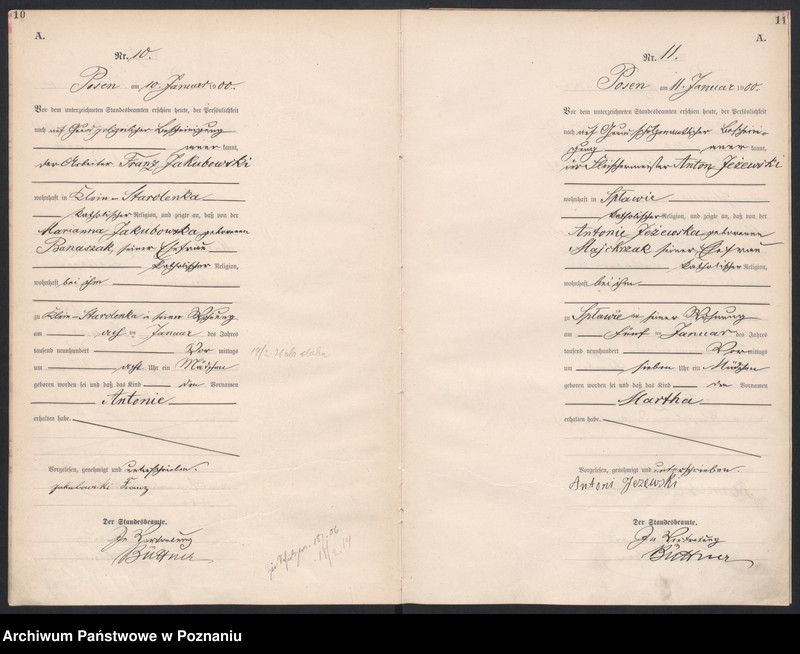 10
A.
Nr. 10.
Posen am 10. Januar 1900.
Vor dem unterzeichneten Standesbeamten erschien heute, der Persönlichkeit
nach auf Grund polizeilicher Bescheinigung
kannt,
der Arbeiter Franz Jakubowski
wohnhaft in Klein-Starolenka
katholischer Religion, und zeigte an, daß von der
Marianna Jakubowska geborenen
Banaszak, seiner Ehefrau
katholischer Religion,
wohnhaft bei ihm
zu Klein-Starolenka in seiner Wohnung
am acht ten Januar des Jahres
tausend neunhundert Vor mittags
um acht Uhr ein Mädchen
geboren worden sei und daß das Kind den Vornamen
Antonie
erhalten habe.
Vorgelesen, genehmigt und unterschrieben.
Jakubowski Franz
Der Standesbeamte.
In Vertretung
Büttner
11
A.
Nr. 11.
Posen am 11. Januar 1900.
Vor dem unterzeichneten Standesbeamten erschien heute, der Persönlichkeit
nach auf Grund Beschei-
nigung kannt,
der Fleischermeister Anton Jeżewski
wohnhaft in Spławie
katholischer Religion, und zeigte an, daß von der
Antonie Jeżewska geborenen
Majchrzak seiner Ehefrau
katholischer Religion,
wohnhaft bei ihm
zu Spławie in seiner Wohnung
am fünf ten Januar des Jahres
tausend neunhundert Vor mittags
um sieben Uhr ein Mädchen
geboren worden sei und daß das Kind den Vornamen
Martha
erhalten habe.
Vorgelesen, genehmigt und unterschrieben.
Antoni Jeżewski
Der Standesbeamte.
In Vertretung
Büttner
Archiwum Państwowe w Poznaniu